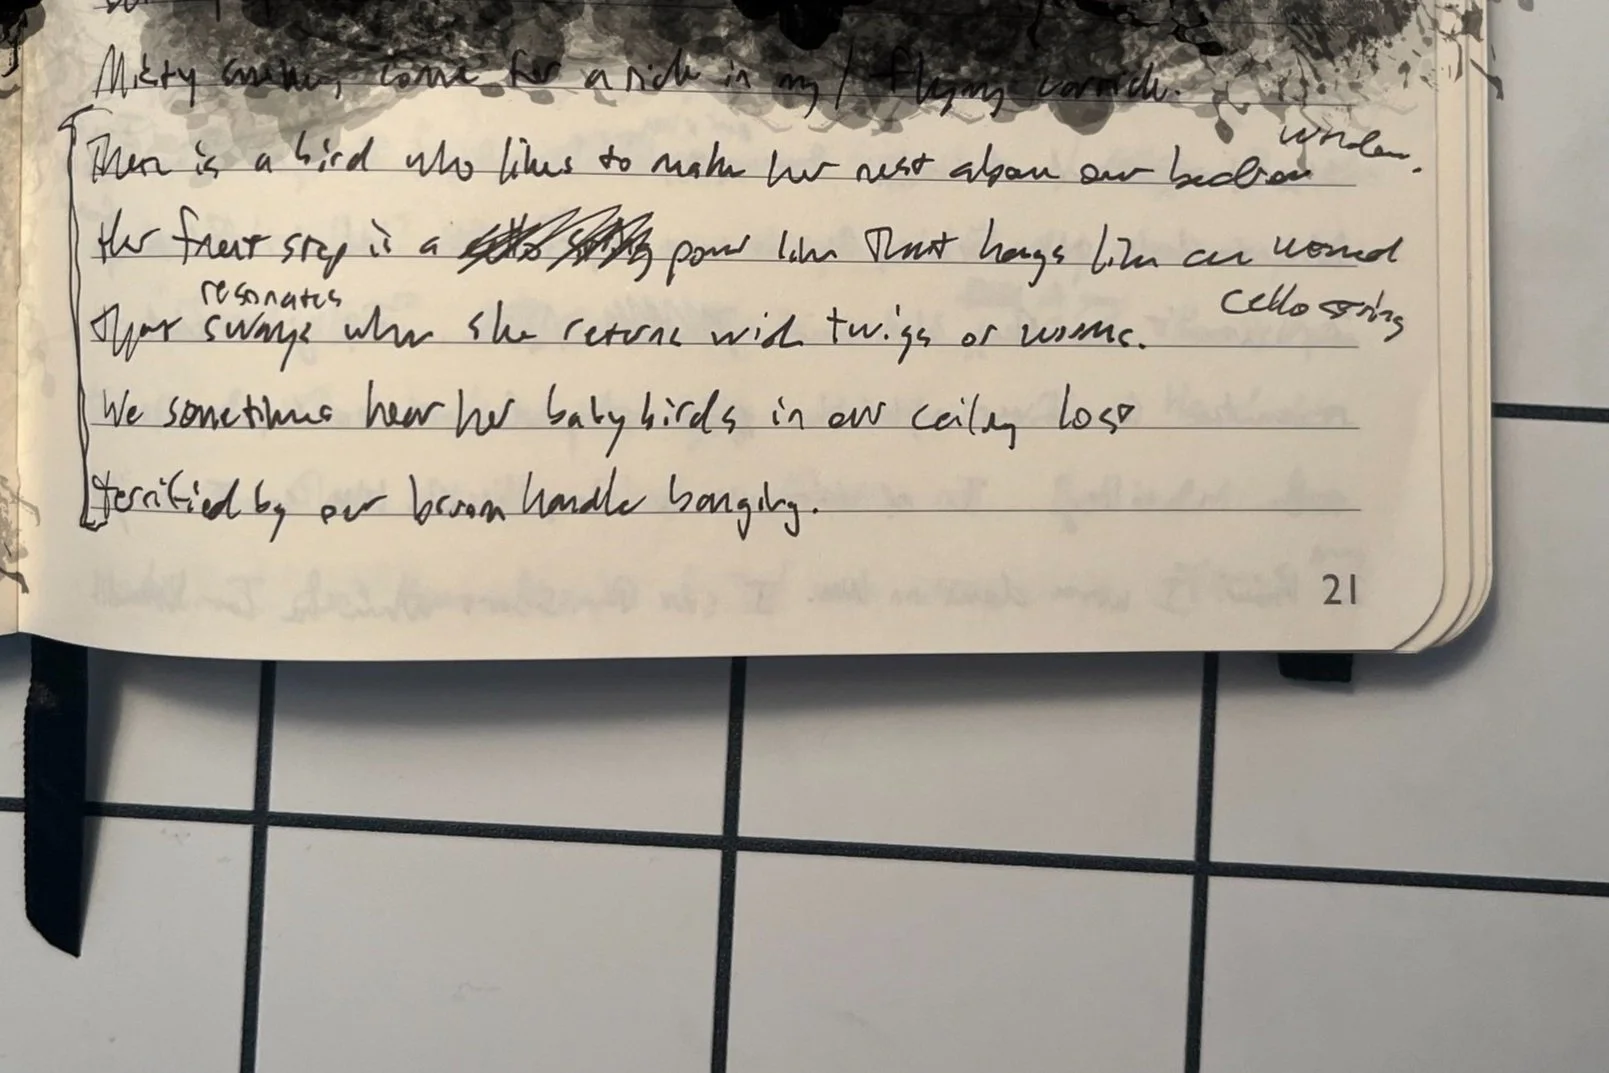 come for a ride in my / flying
There is a bird who likes to make her nest above our bedroom window.
Her front step is a power line that hangs like an unused cello string
That sways resonates when she returns with twigs or worms.
We sometimes hear her baby birds in our ceiling lost
terrified by our broom handle banging.
21